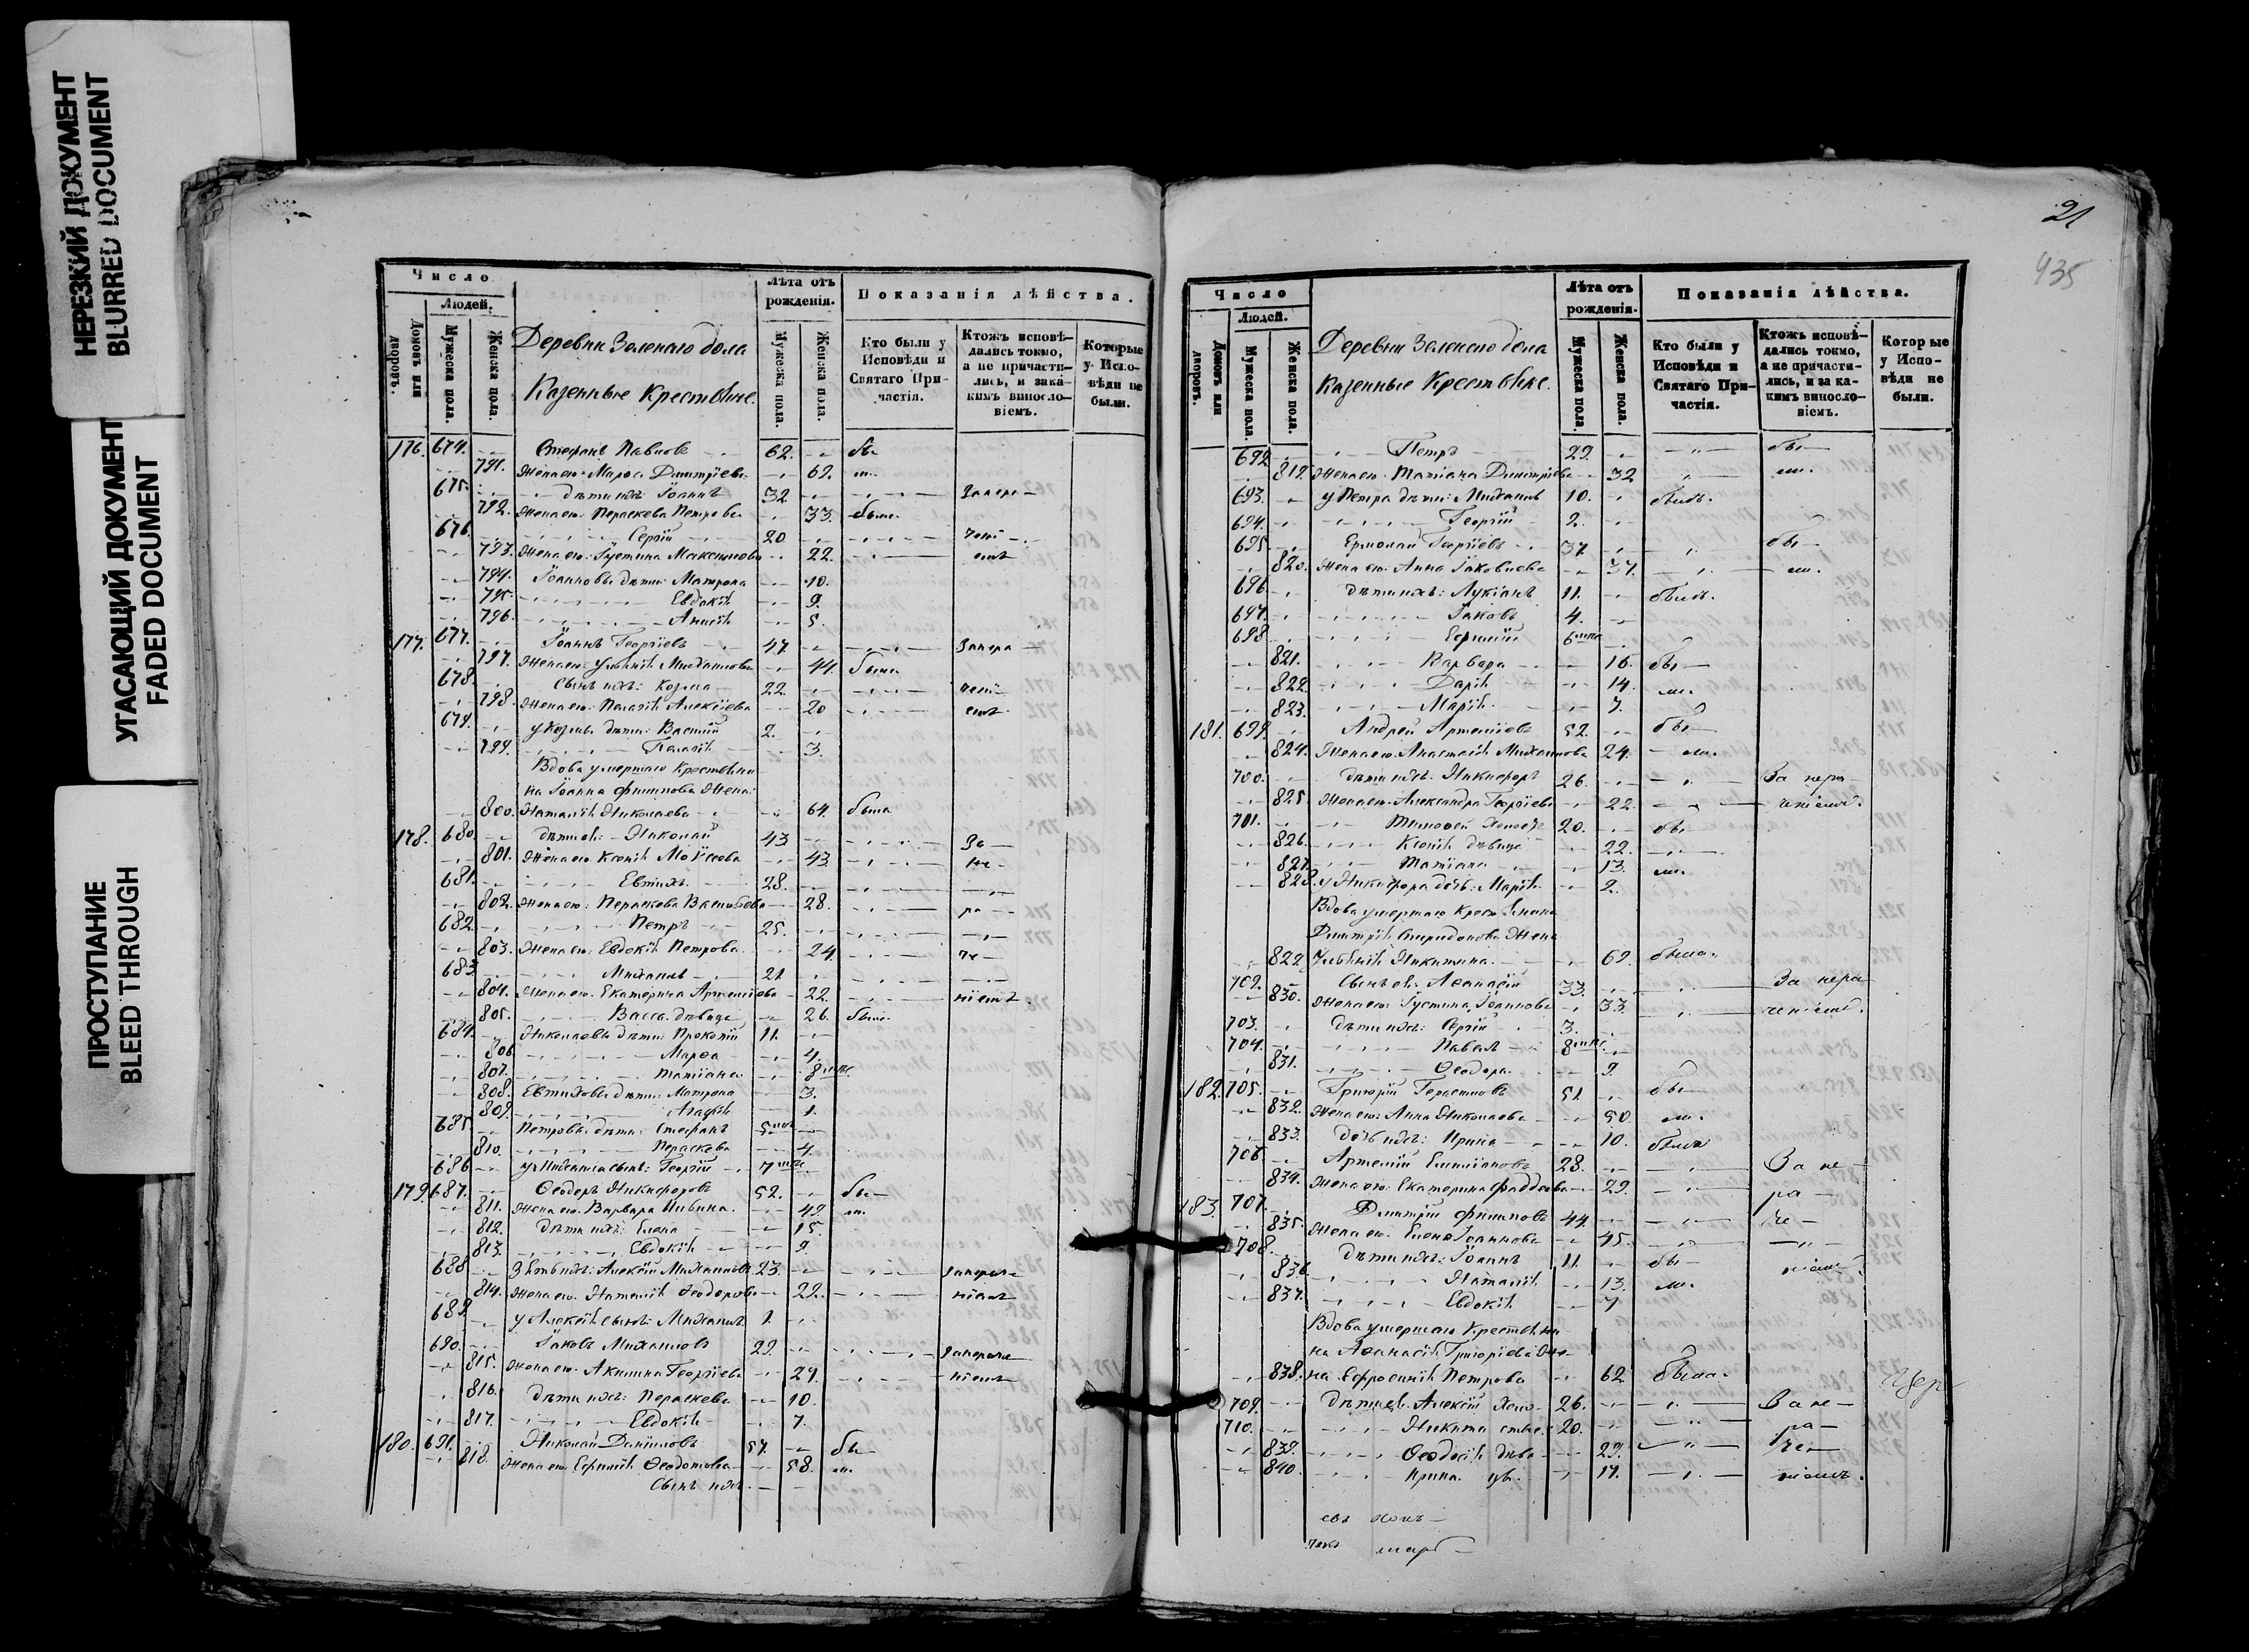 НЕРЕЗКИЙ ДОКУМЕНТ
BLURRED DOCUMENT
УГАСАЮЩИЙ ДОКУМЕНТ
FADED DOCUMENT
ПРОСТУПАНИЕ
BLEED THROUGH
Число
Людей.
Домовъ или дворовъ.
Мужеска пола.
Женска пола.
Деревни Зеленаго дола
Казенные Крестьяне.
Лѣта отъ рожденія.
Мужеска пола.
Женска пола.
Показанія дѣйства.
Кто были у Исповѣди и Святаго Причастія.
Ктожъ исповѣдались токмо, а не причастились, и за какимъ винословіемъ.
Которые у Исповѣди не были.
176. 674. Стефанъ Павловъ 62. бы
791. Жена его Марѳа Димитріева 62. ли.
675. дѣти ихъ: Іоаннъ 32.
792. Жена его: Параскева Петрова 33. была
676. Сергій 20
793. Жена его: Іустина Максимова 22.
794. Іоанновы дѣти: Матрона 10.
795. Евдокія 9.
796. Анисія 5.
177. 677. Іоаннъ Георгіевъ 47
797. Жена его: Ульянія Михаилова 44. была
678. Сынъ ихъ: Козма 22.
798. Жена его: Пелагія Алексіева 20
679. у Козмы дѣти: Василій 2.
799. Пелагія 3.
Вдова умершаго Крестьяни
на Іоанна Филиппова Жена
800. Наталія Николаева 64. была
178. 680. дѣти ея: Николай 43 За
801. Жена его Ксенія Моѵсеева 43. не
681. Евтихъ 28.
802. Жена его: Параскева Васильева 28. ра
682. Петръ 25.
803. Жена его: Евдокія Петрова 24. че
683. Михаилъ 21
804. Жена его: Екатерина Артеміева 22. ніемъ.
805. Васса дѣвица 26. была
684. Николаевы дѣти: Прокопій 11.
806. Марѳа 4.
807. Татіана 8
808. Евтиховы дѣти: Матрона 3.
809. Агафія 1.
685. Петровы дѣти: Стефанъ 5
810. Параскева 4.
686. у Михаила сынъ: Георгій 7
179. 687. Ѳеодоръ Никифоровъ 52. бы
811. Жена его Варвара Ивина. 49. ли.
812. дѣти ихъ: Елена 15.
813. Евдокія 9.
688. Зять ихъ: Алексій Михаиловъ 23.
814. Жена его: Наталія Ѳеодорова 22. ніемъ
689. у Алексія сынъ: Михаилъ 1.
690. Іаковъ Михаиловъ 29.
815. Жена его: Акилина Георгіева 27. ніемъ
816. дѣти ихъ: Параскева 10.
817. Евдокія 7.
180. 691. Николай Даніиловъ 57. бы
818. Жена его Евфимія Ѳеодотова 58. ли.
Сынъ ихъ
21
435
Число
Людей.
Домовъ или дворовъ.
Мужеска пола.
Женска пола.
Деревни Зеленаго дола
Казенные Крестьяне.
Лѣта отъ рожденія.
Мужеска пола.
Женска пола.
Показанія дѣйства.
Кто были у Исповѣди и Святаго Причастія.
Ктожъ исповѣдались токмо, а не причастились, и за какимъ винословіемъ.
Которые у Исповѣди не были.
692. Петръ 29. бы
819. Жена его: Татіана Димитріева 32 ли.
693. у Петра дѣти: Михаилъ 10. былъ.
694. Георгій 2.
695. Ермолай Георгіевъ 37. бы
820. Жена его: Анна Іаковлева 37. ли.
696. дѣти ихъ: Лукіанъ 11. былъ.
697. Іаковъ 4.
698. 6
821. Варвара 16. бы
822. Дарія 14. ли.
823. Марія 7.
181. 699. Андрей Артеміевъ 52. бы
824. Жена его Анастасія Михаилова 24. ли.
700. дѣти ихъ: Никифоръ 26. За нера
825. Жена его: Александра Георгіева 22. ченіемъ.
701. Тимоѳей 20. бы
826. Ксенія дѣвица 22.
827. Татіана 13. ли.
828. у Никифора дочь: Марія 2.
Вдова умершаго Крестьянина
Димитрія Спиридонова Жена
829. Ульянія Никитина. 62. была.
702. Сынъ ея: Аѳанасій 33. За нера
830. Жена его: Іустина Іоаннова 33. ченіемъ.
703. Дѣти ихъ: Сергій 3.
704. Павелъ 8
831. Ѳеодора. 9.
182. 705. Григорій Герасимовъ 51. бы
832. Жена его: Анна Николаева 50. ли.
833. Дочь ихъ: Ирина 10. была
706. Артемій 28. За не
834. Жена его: Екатерина Фаддеева 29. ра
183. 707. Димитрій Филиповъ 44. че
835. Жена его: Елена Іоаннова 45.
708. Дѣти ихъ: Іоаннъ 11. бы ніемъ
836. Наталія 13. ли.
837. Евдокія 7
Вдова умершаго Крестьяни
на Аѳанасія Григоріева Же
838. на Евфросинія Петрова 62 была.
709. Дѣти ея: Алексій 26. За не
710. Никита 20. ра
839. Ѳеодосія дѣва 29. че
840. Ирина 17. ніемъ.